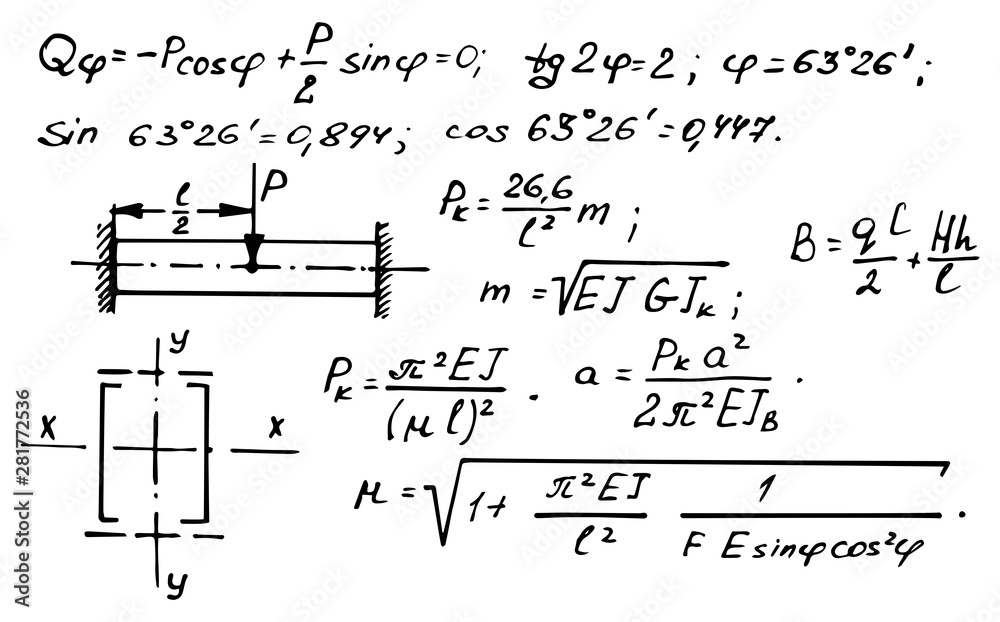 Qφ = -Pcosφ + P/2 sinφ = 0; tg2φ = 2; φ = 63°26′;
Sin 63°26′ = 0,894; cos 63°26′ = 0,447.
l/2 P
Pк = 26,6/l² m;
B = qL/2 + Hh/l
m = √(EJ GJк);
y
Pк = π²EJ/(μl)². a = Pк a²/2π²EJB.
x x
μ = √(1 + π²EJ/l² 1/(F E sinφcos²φ)).
y
Adobe Stock | #281772536